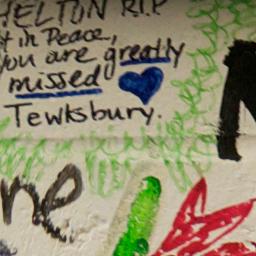 HELTON R.I.P
t in Peace,
you are greatly
missed
Tewksbury.
ne